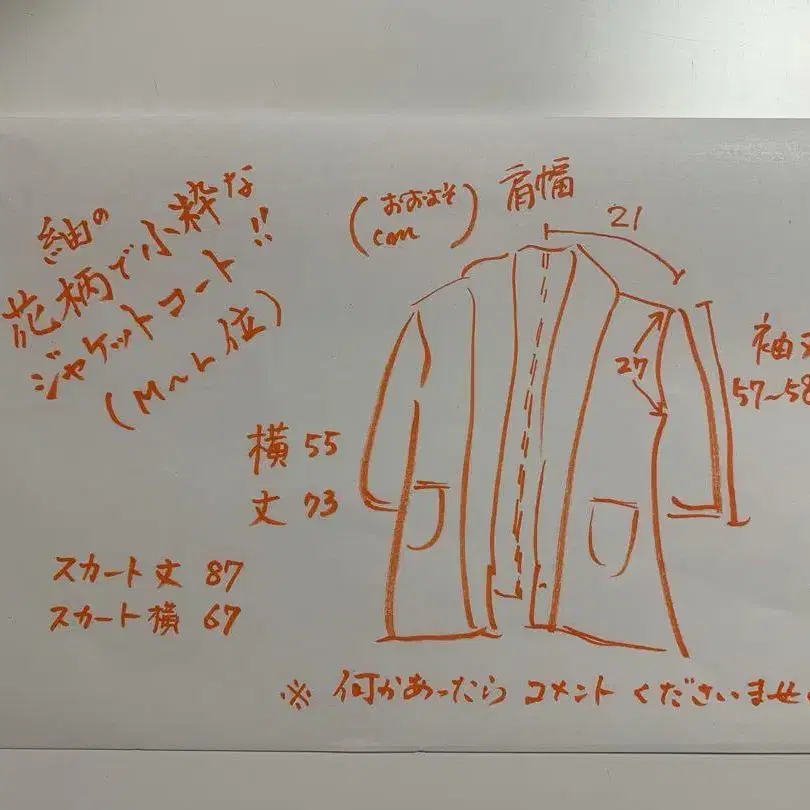 紬の
花柄で小粋な
ジャケットコート!!
(M〜L位)
(おおよそ
cm)
肩幅
21
27
袖丈
57〜58
横 55
丈 73
スカート丈 87
スカート横 67
※ 何かあったら コメント くださいませ